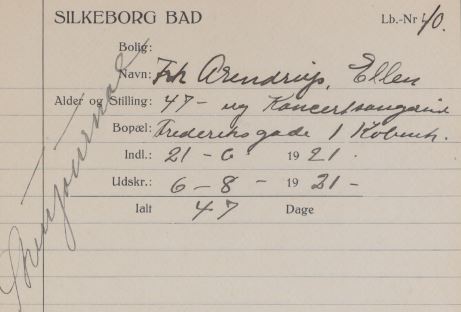 SILKEBORG BAD Lb.-Nr 40.
Bolig:
Navn: Frk Arendrup, Ellen
Alder og Stilling: 47 - ug Koncertsangerinde
Bopæl: Frederiksgade 1 Københ.
Indl.: 21 - 6 1921.
Udskr.: 6 - 8 - 1921 -
Ialt 47 Dage